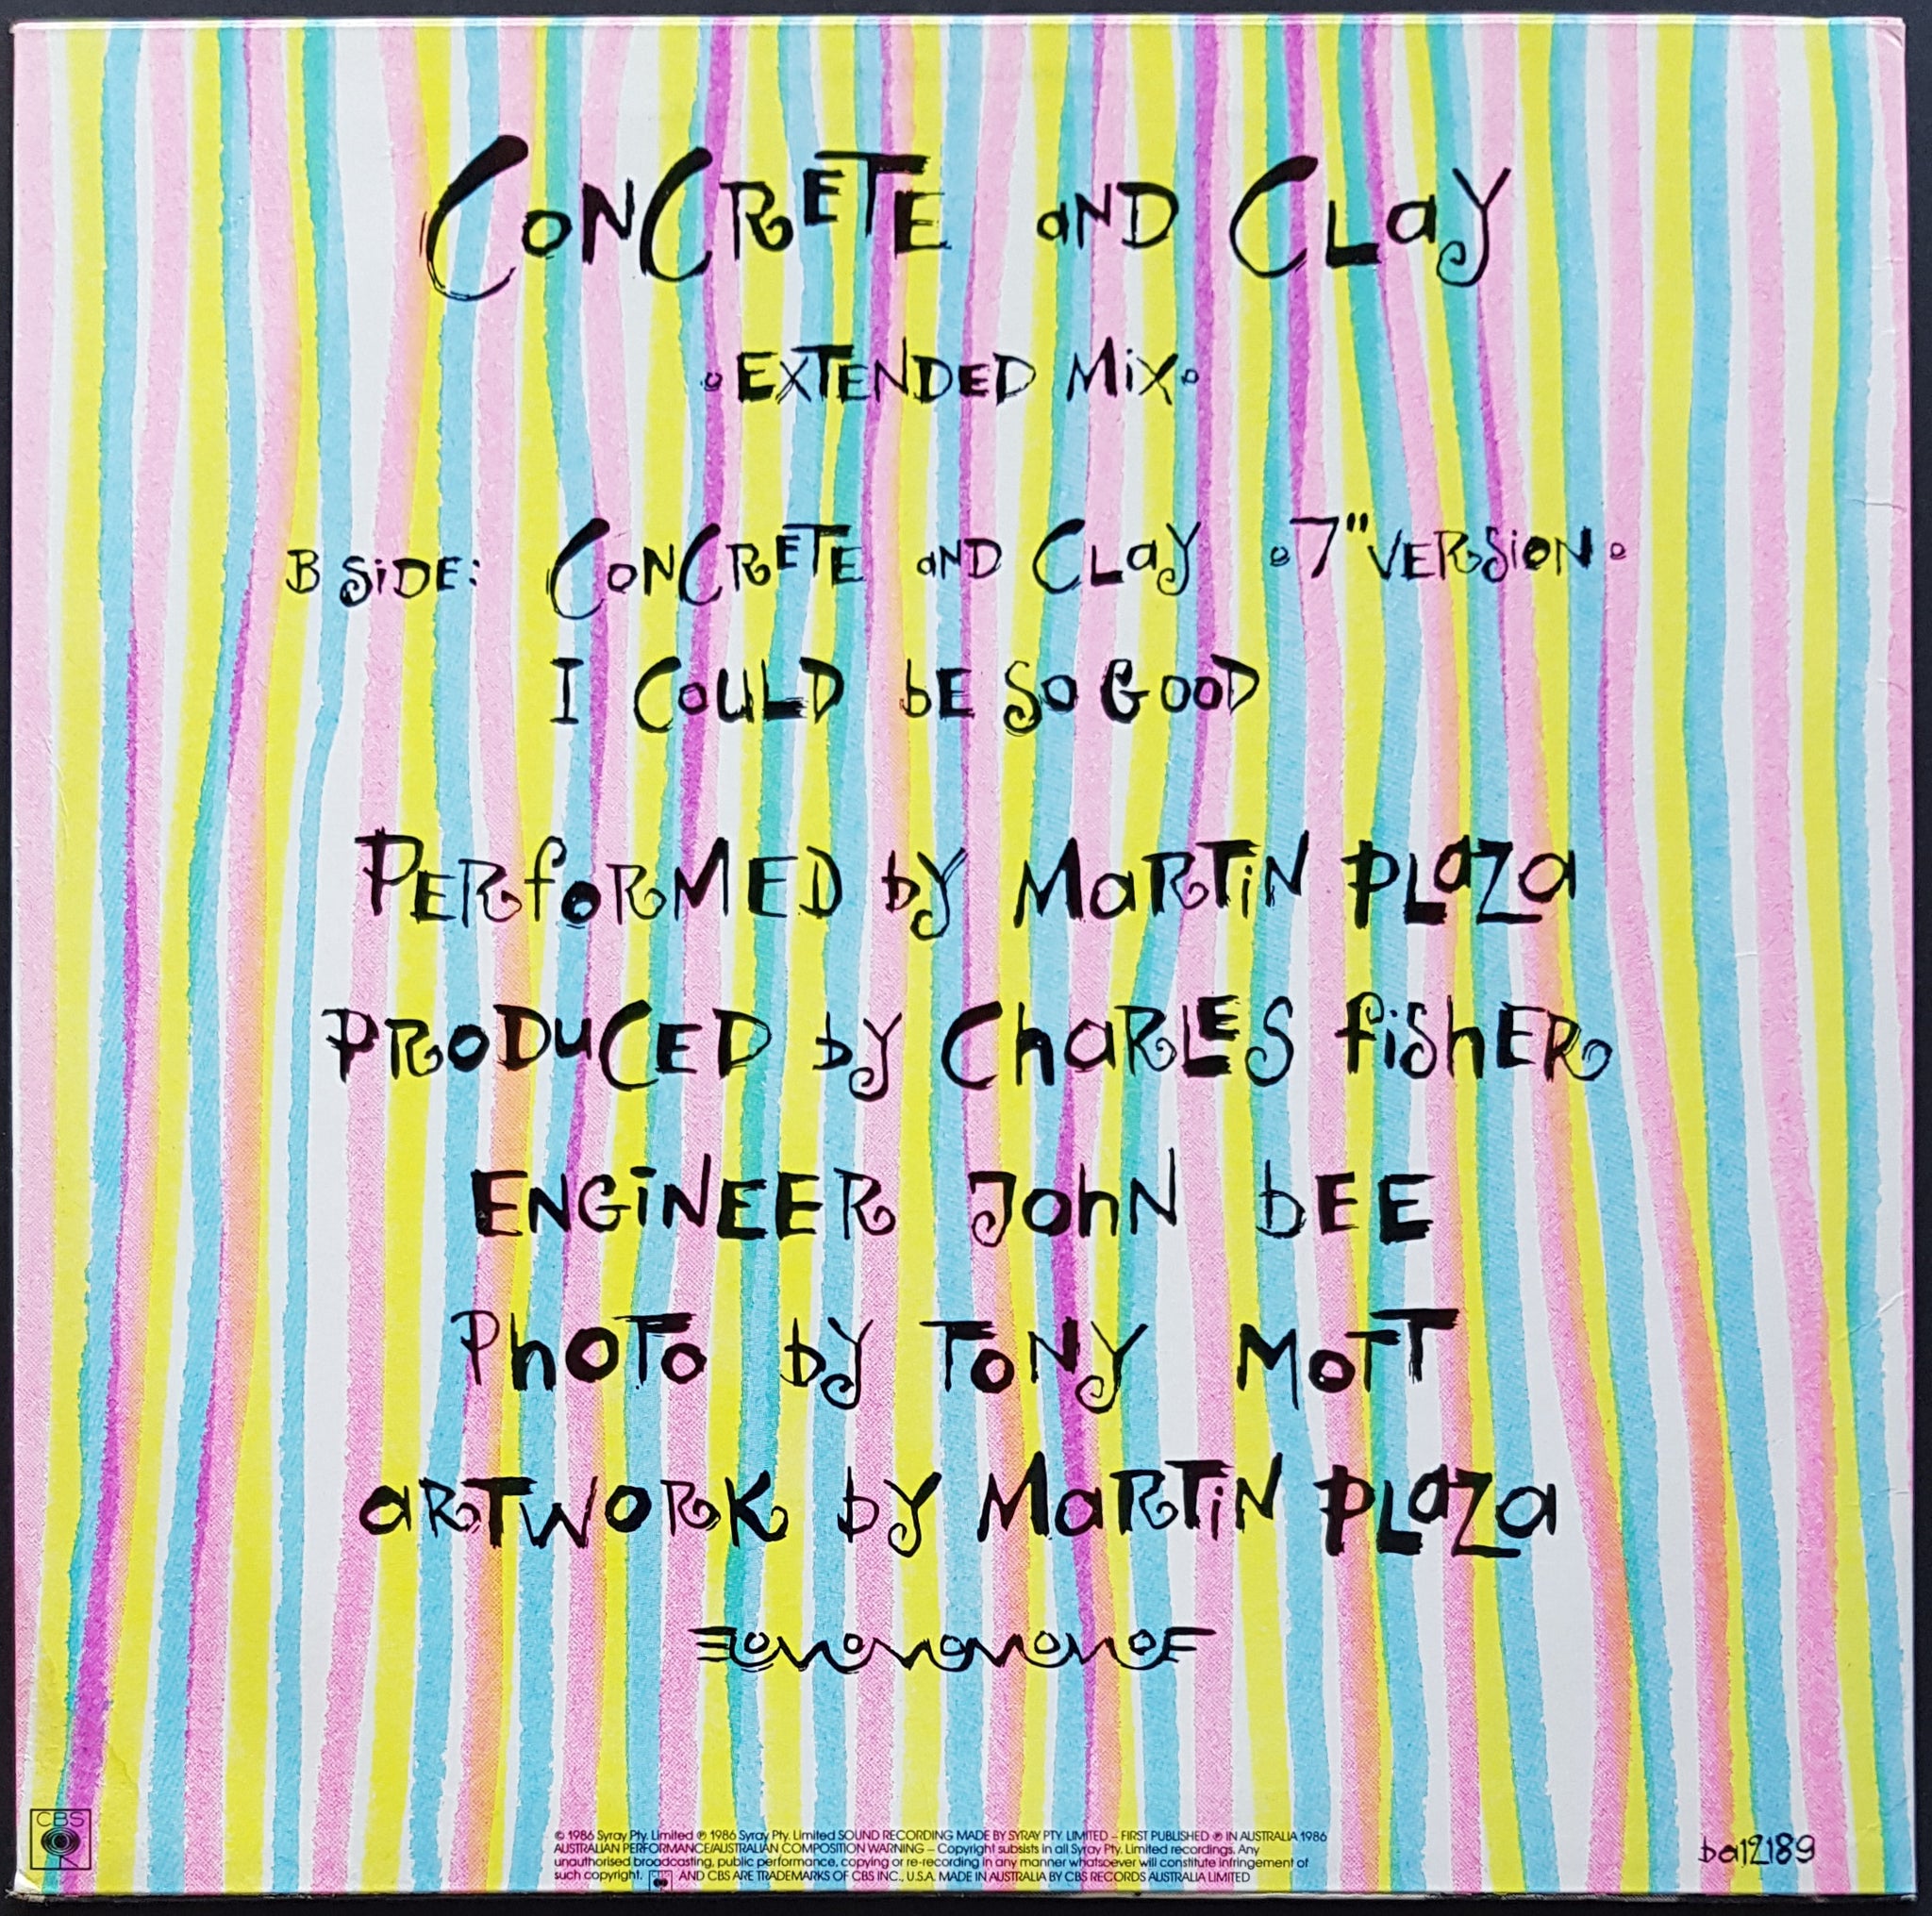 ConCRETE aND CLay
EXTENDED MiX
B SiDE: ConCRETE aND CLay 7" VERSiON
I COuLD bE SO GOOD
PERfoRMED by MaRTiN PLaZa
PRODuCED by ChaRLES fiShER
ENGiNEER JohN bEE
PhoTo by ToNY MoTT
aRTWORK by MaRTiN PLaZa
CBS
© 1986 Syray Pty. Limited ℗ 1986 Syray Pty. Limited SOUND RECORDING MADE BY SYRAY PTY. LIMITED – FIRST PUBLISHED ℗ IN AUSTRALIA 1986
AUSTRALIAN PERFORMANCE/AUSTRALIAN COMPOSITION WARNING – Copyright subsists in all Syray Pty. Limited recordings. Any
unauthorised broadcasting, public performance, copying or re-recording in any manner whatsoever will constitute infringement of
such copyright. CBS AND CBS ARE TRADEMARKS OF CBS INC., U.S.A. MADE IN AUSTRALIA BY CBS RECORDS AUSTRALIA LIMITED
ba12189